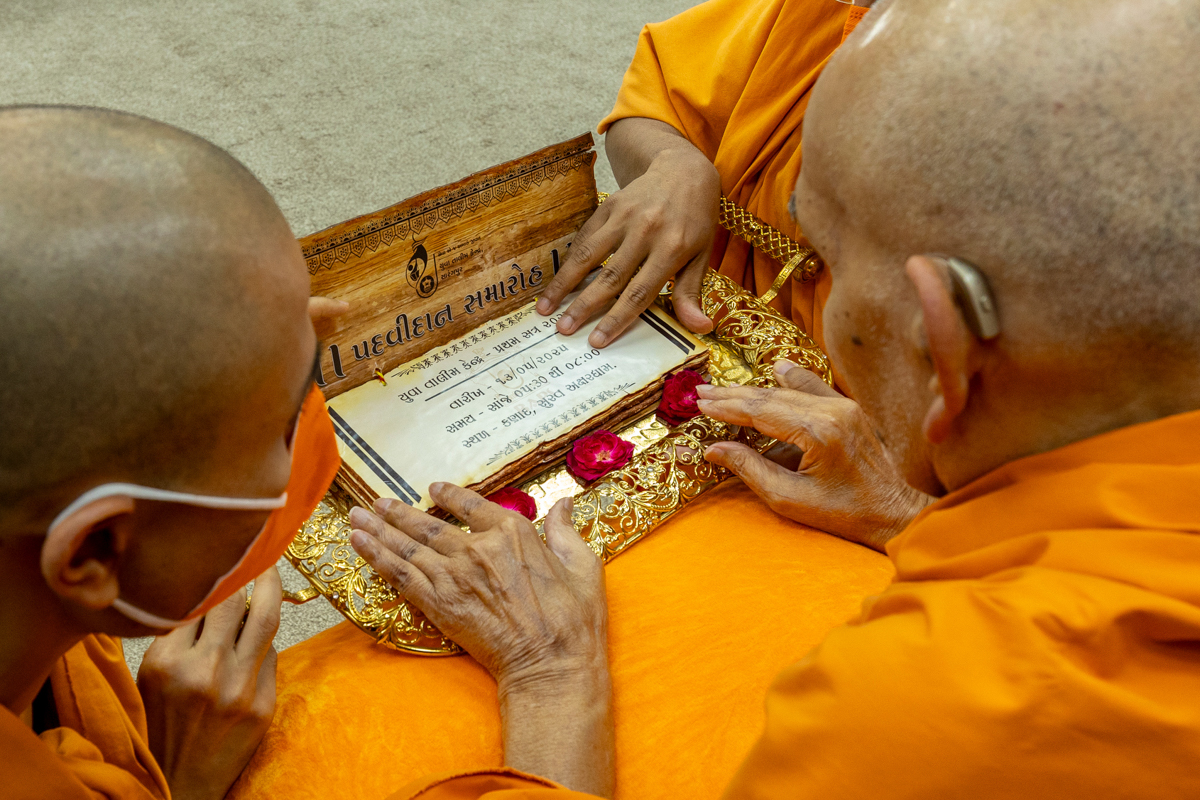 યુવા તાલીમ કેન્દ્ર
સારંગપુર
॥ પદવીદાન સમારોહ ॥
યુવા તાલીમ કેન્દ્ર - પ્રથમ સત્ર
તારીખ - ૧૩/૦૫/૨૦૨૧
સમય - સાંજે ૦૫:૩૦ થી ૦૮:૦૦
સ્થળ - કણાદ, સુરત અક્ષરધામ.